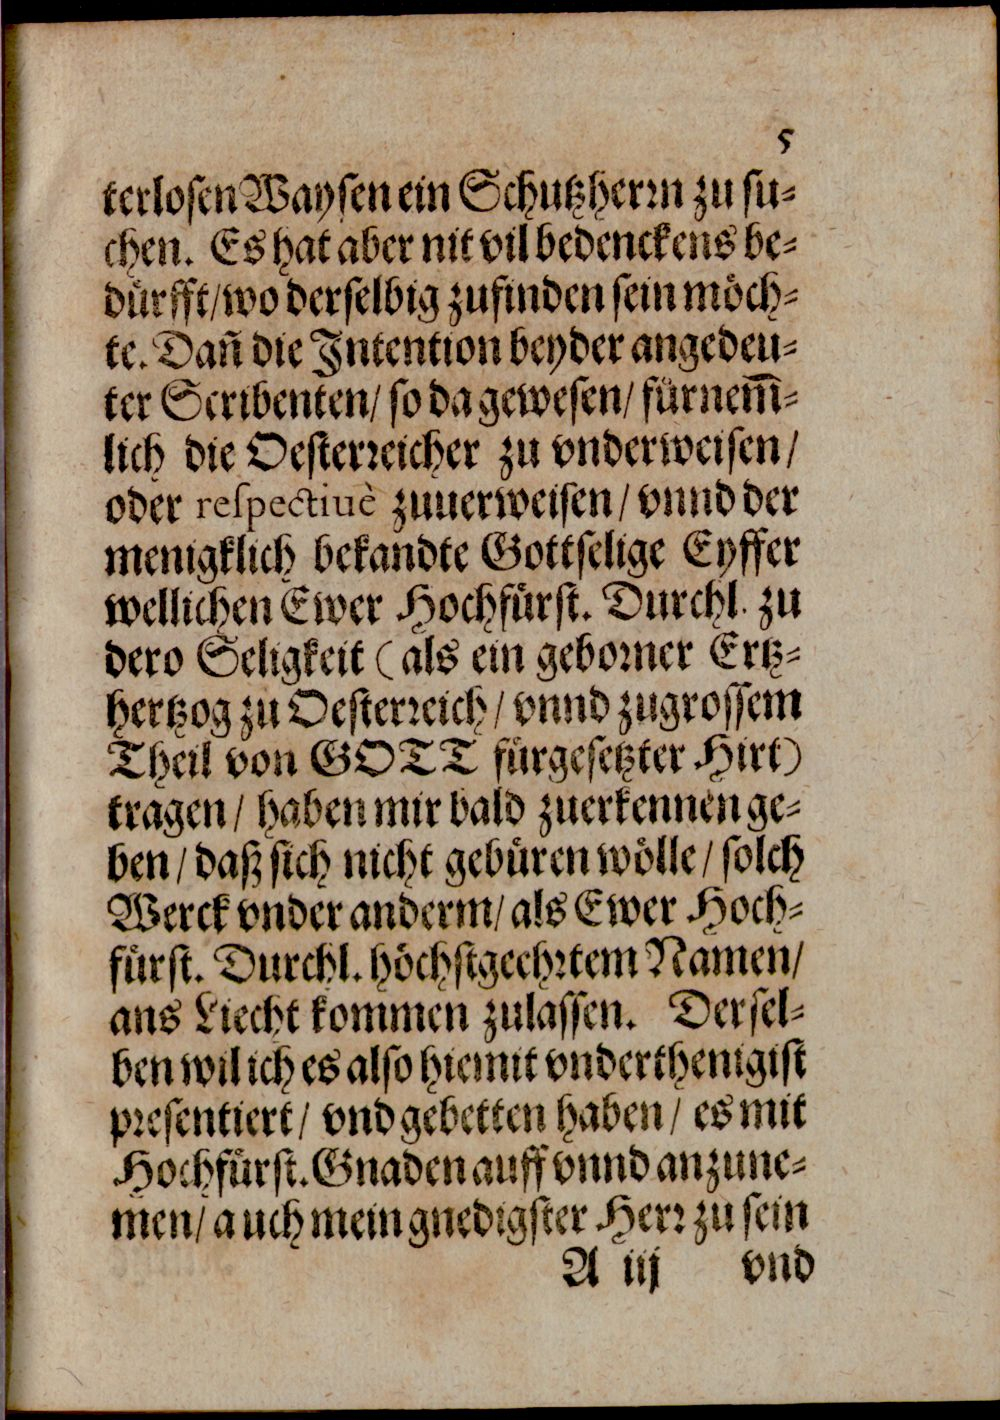 5
terlosen Waysen ein Schutzherrn zu su-
chen. Es hat aber nit vil bedenckens be-
dürfft/ wo derselbig zufinden sein möch-
te. Dañ die Intention beyder angedeu-
ter Scribenten/ so da gewesen/ fürnem̃-
lich die Oesterreicher zu vnderweisen/
oder respectiuè zuuerweisen/ vnnd der
menigklich bekandte Gottselige Eyffer
wellichen Ewer Hochfürst. Durchl. zu
dero Seligkeit (als ein geborner Ertz-
hertzog zu Oesterreich/ vnnd zugrossem
Theil von GOTT fürgesetzter Hirt)
tragen/ haben mir bald zuerkennen ge-
ben/ daß sich nicht gebüren wölle/ solch
Werck vnder anderm/ als Ewer Hoch-
fürst. Durchl. höchstgeehrtem Namen/
ans Liecht kommen zulassen. Dersel-
ben wil ich es also hiemit vnderthenigist
presentiert/ vnd gebetten haben/ es mit
Hochfürst. Gnaden auff vnnd anzune-
men/ auch mein gnedigster Herr zu sein
A iij vnd